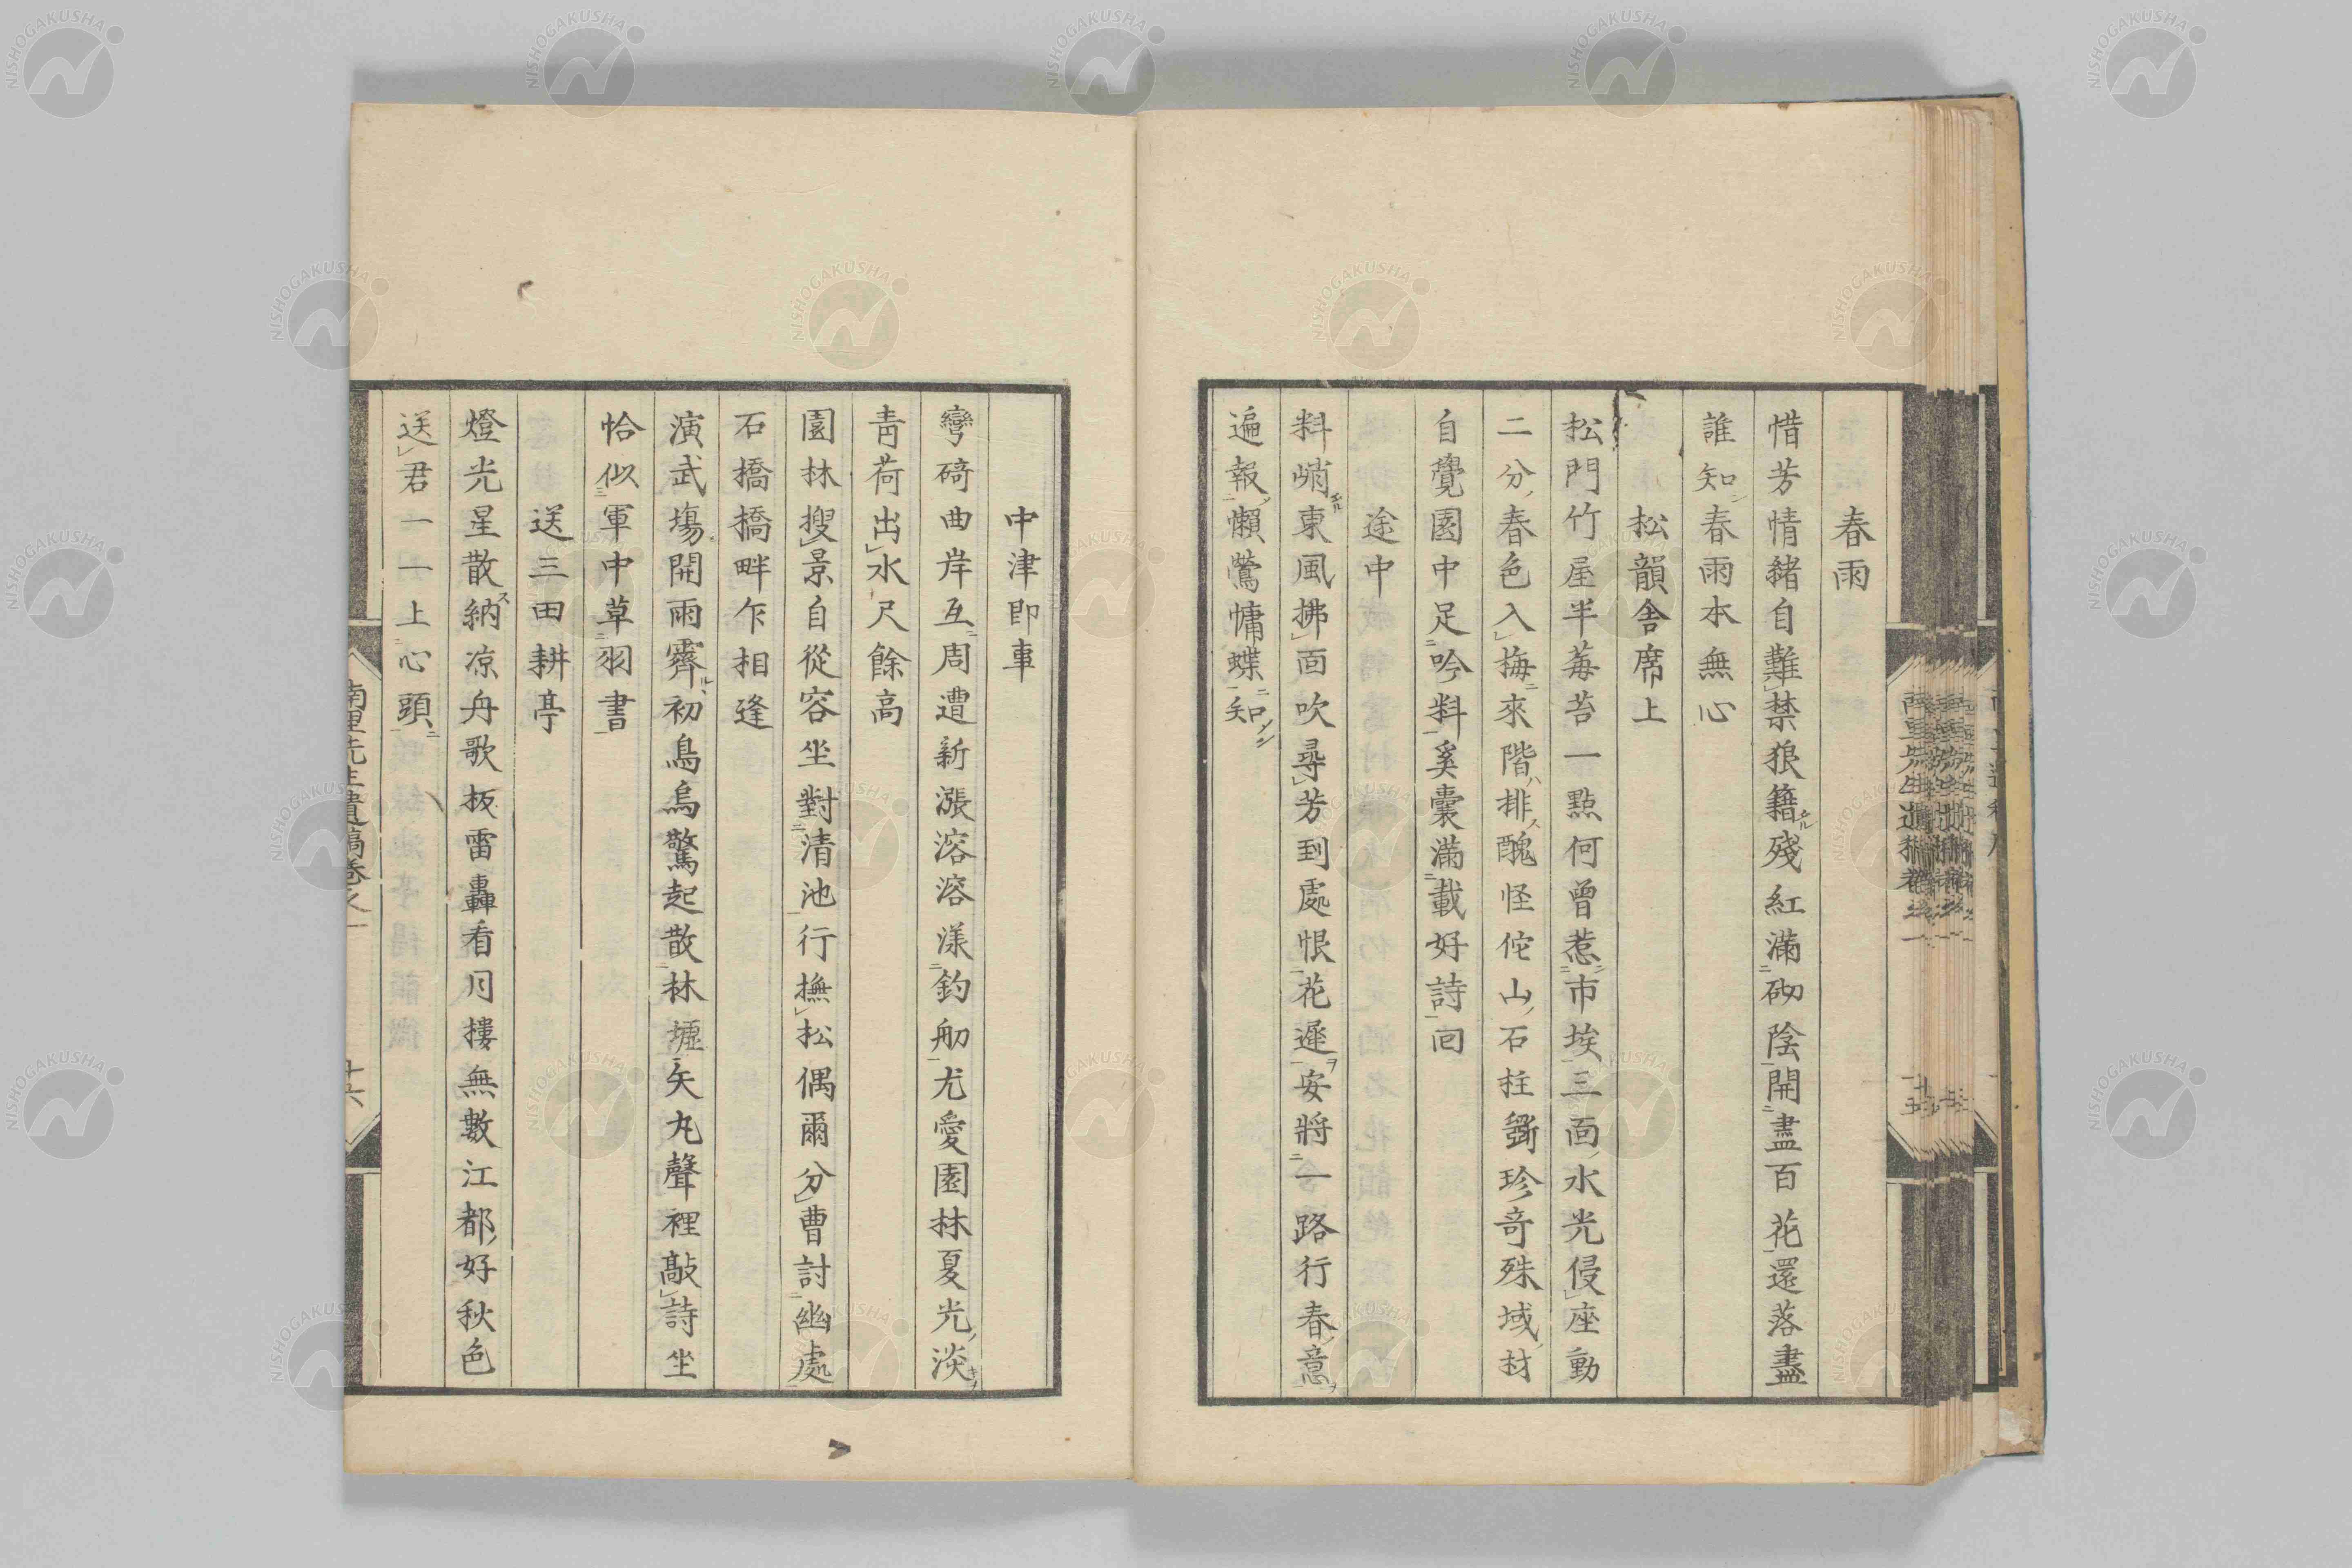 春雨
惜芳情緒自難禁狼籍殘紅滿砌陰開盡百花還落盡
誰知春雨本無心
松韻舎席上
松門竹屋半莓苔一點何曾惹市埃三面水光侵座動
二分春色入梅來階排醜怪佗山石柱斵珍竒殊域材
自覺園中足吟料奚囊滿載好詩回
途中
料峭東風拂面吹尋芳到處恨花遲安將一路行春意
遍報懶鶯慵蝶知
中津即事
彎碕曲岸互周遭新漲溶溶漾釣舠尤愛園林夏光淡
青荷出水尺餘高
園林搜景自從容坐對清池行撫松偶爾分曹討幽處
石橋橋畔乍相逢
演武塲開雨霽初鳥烏驚起散林墟矢丸聲裡敲詩坐
恰似軍中草羽書
送三田耕亭
燈光星散納凉舟歌板雷轟看月摟無數江都好秋色
送君一一上心頭
南里先生遺稿卷之一
十六
NISHOGAKUSHA